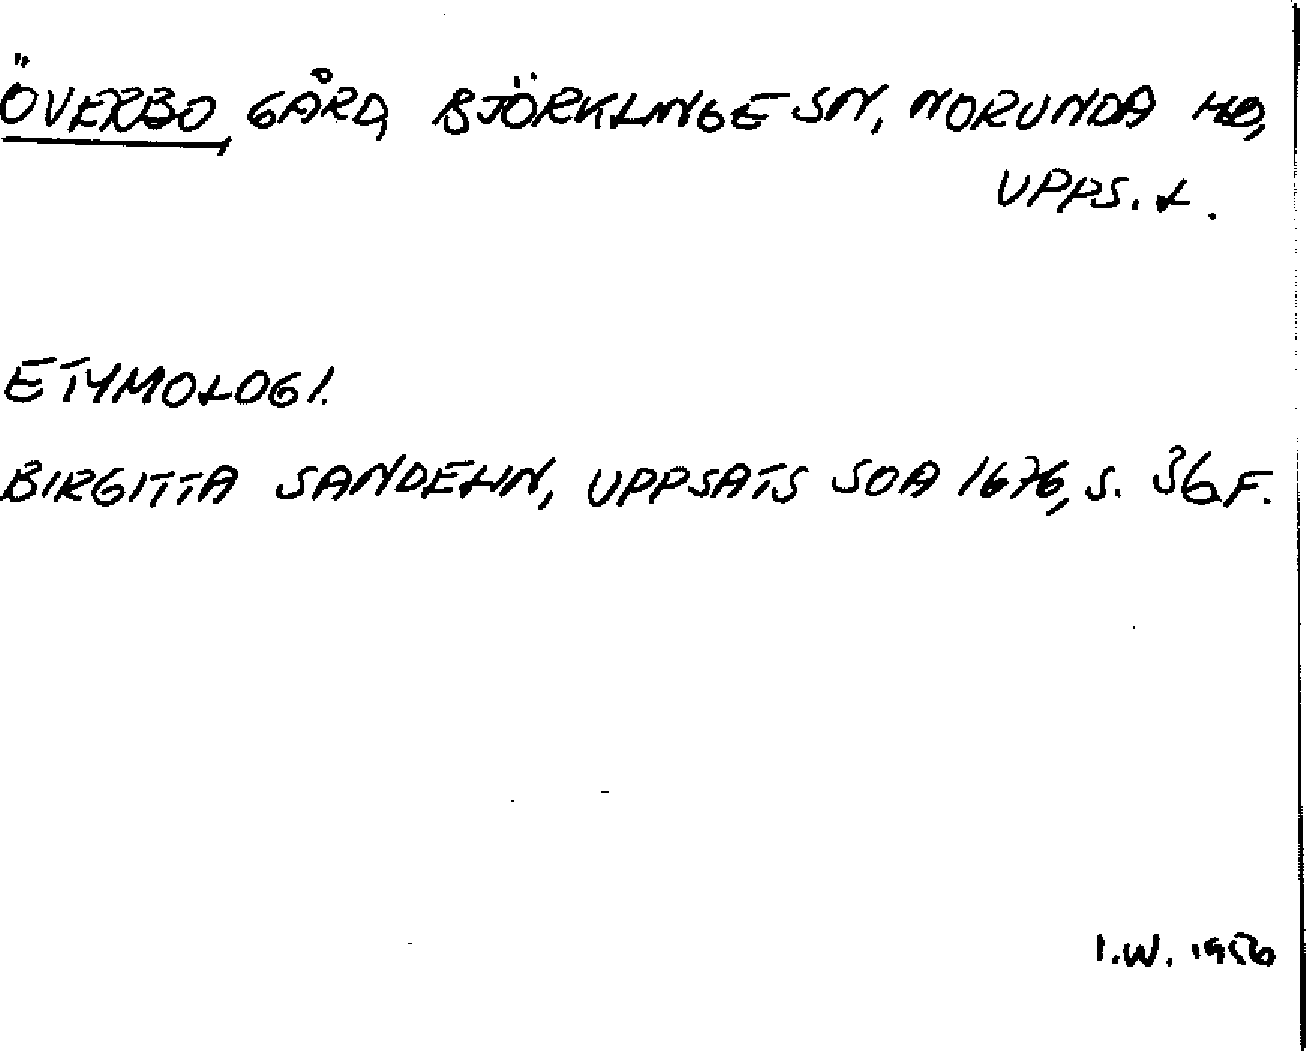 ÖVERBO, GÅRD, BJÖRKLINGE SN, NORUNDA HD,
UPPS. L.
ETYMOLOGI.
BIRGITTA SANDELIN, UPPSATS SOA 1676, S. 36 F.
I.W. 1956